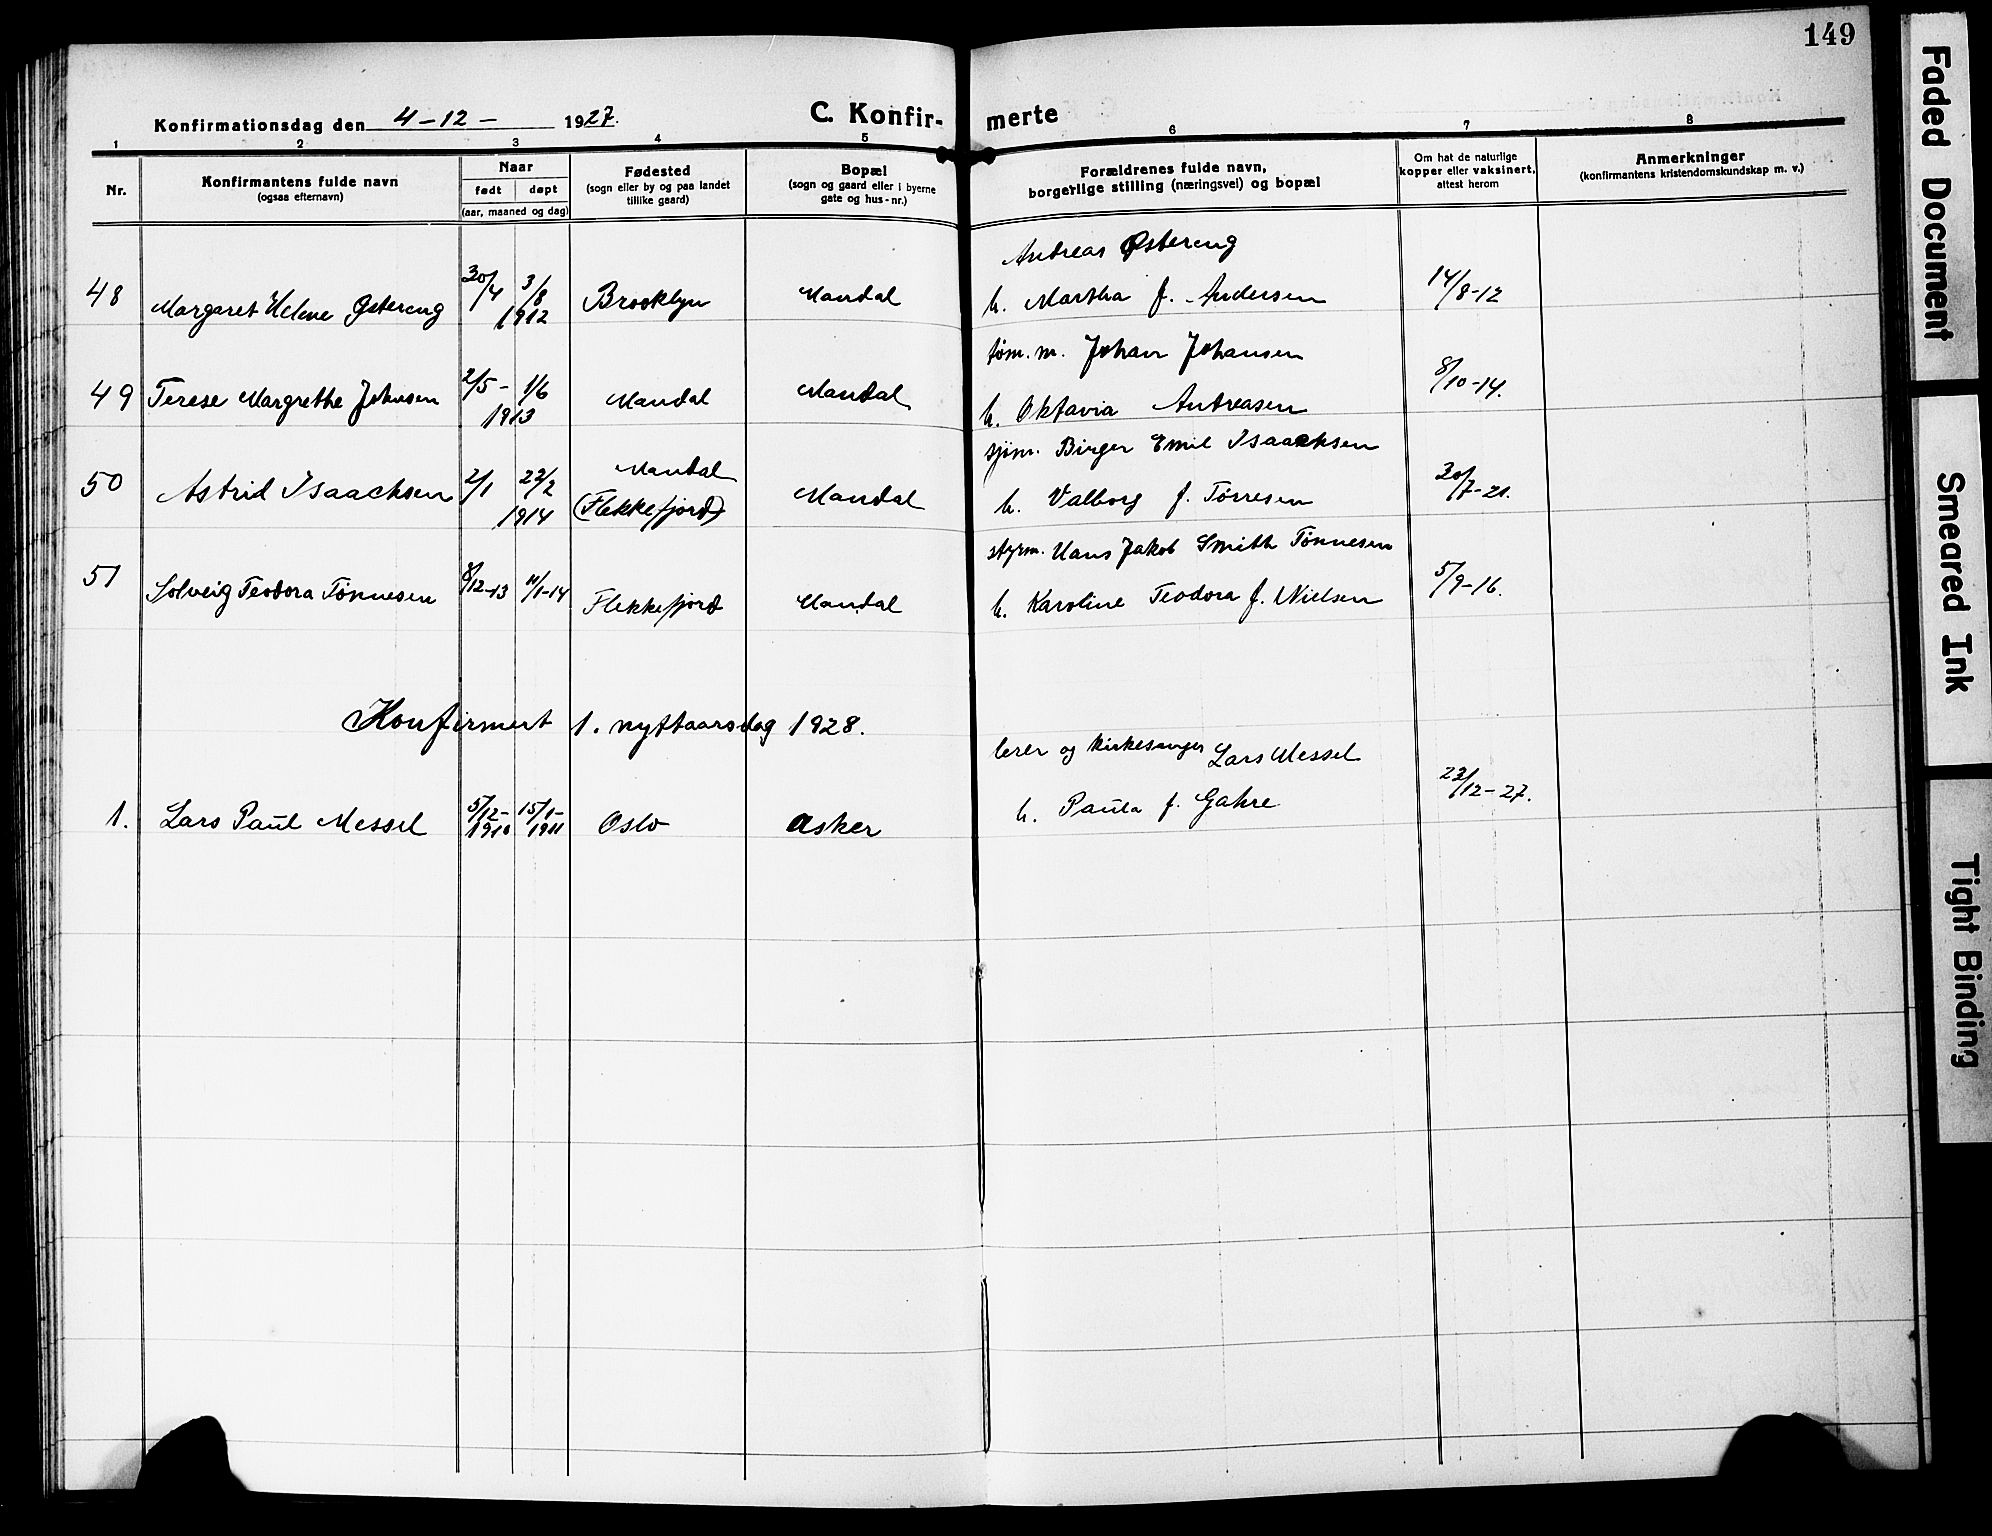 149
Konfirmationsdag den 4-12- 1927.
C. Konfir- merte
1 2 3 4 5 6 7 8
Nr.
Konfirmantens fulde navn
(ogsaa efternavn)
Naar
født døpt
(aar, maaned og dag)
Fødested
(sogn eller by og paa landet
tillike gaard)
Bopæl
(sogn og gaard eller i byerne
gate og hus-nr.)
Forældrenes fulde navn,
borgerlige stilling (næringsvei) og bopæl
Om hat de naturlige
kopper eller vaksinert,
attest herom
Anmerkninger
(konfirmantens kristendomskundskap m. v.)
Andreas Østereng
48 Margaret Helene Østereng 30/4 3/8 1912 Brooklyn Mandal h. Martha f. Andersen 14/8-12
tøm.m. Johan Johansen
49 Terese Margrethe Johnsen 2/5- 1/6 1913 Mandal Mandal h. Oktavia Andreasen 8/10-14.
sjøm. Birger Emil Isaachsen
50 Astrid Isaachsen 2/1 22/2 1914 Mandal (Flekkefjord) Mandal h. Valborg f. Tørresen 30/7-21.
styrm. Hans Jakob Smith Tønnesen
51 Solveig Teodora Tønnesen 8/12-13 11/1-14 Flekkefjord Mandal h. Karoline Teodora f. Nielsen 5/9-16.
Konfirmert 1. nyttaarsdag 1928.
lærer og kirkesanger Lars Messel
1. Lars Paul Messel 5/12-1910 15/1-1911 Oslo Asker h. Paula f. Gahre 23/12-27.
Faded Document
Smeared Ink
Tight Binding